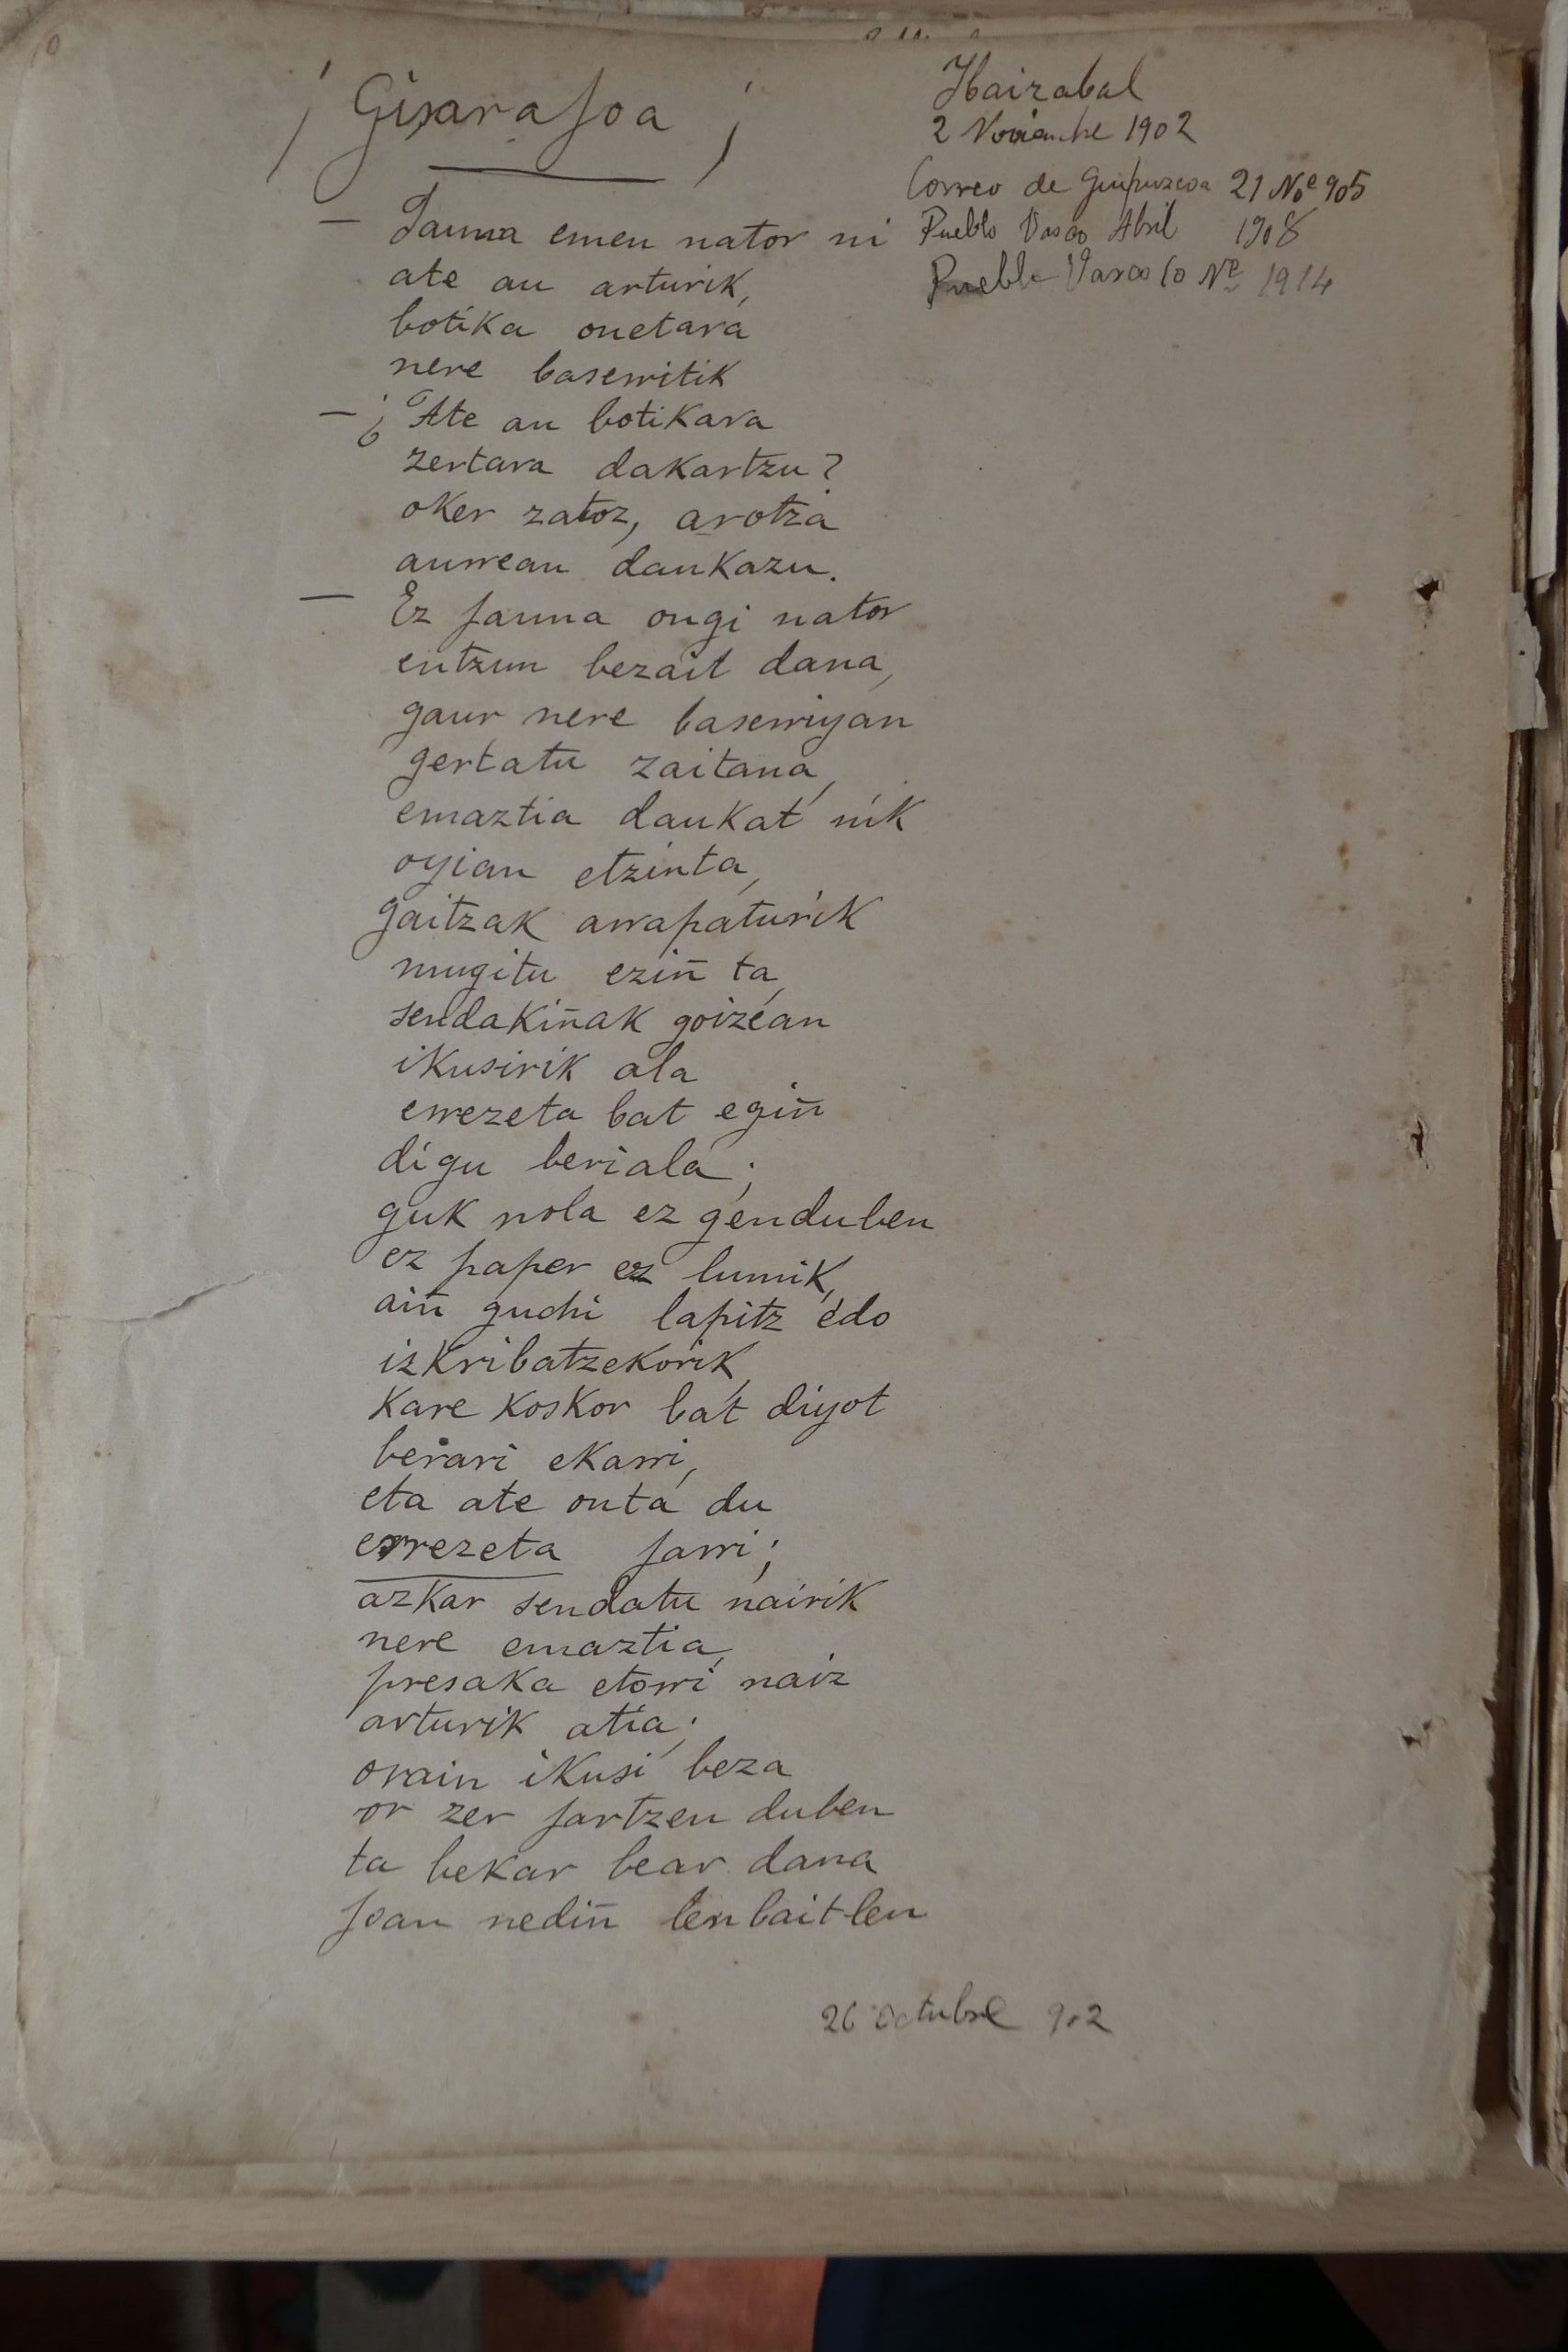 ¡ Gixarajoa !
Ibaizabal
2 Noviembre 1902
Correo de Guipuzcoa 21 Nbe 905
Pueblo Vasco Abril 1908
Pueblo Vasco 10 Nbe 1914
— Jauna emen nator ni
ate au arturik,
botika onetara
nere baserritik
— ¿Ate au botikara
zertara dakartzu?
oker zatoz, arotza
aurrean daukazu.
— Ez jauna ongi nator
entzun bezait dana,
gaur nere baserriyan
gertatu zaitana,
emaztia daukat nik
oyian etzinta,
gaitzak arrapaturik
mugitu eziñ ta,
sendakiñak goizean
ikusirik ala
errezeta bat egiñ
digu beriala;
guk nola ez genduben
ez paper ez lumik,
aiñ guchi lapitz edo
izkribatzekorik,
kare koskor bat diyot
berari ekarri,
eta ate onta du
errezeta jarri;
azkar sendatu nairik
nere emaztia,
presaka etorri naiz
arturik atia;
orain ikusi beza
or zer jartzen duben
ta bekar bear dana
joan nediñ lenbait-len
26 Octubre 902